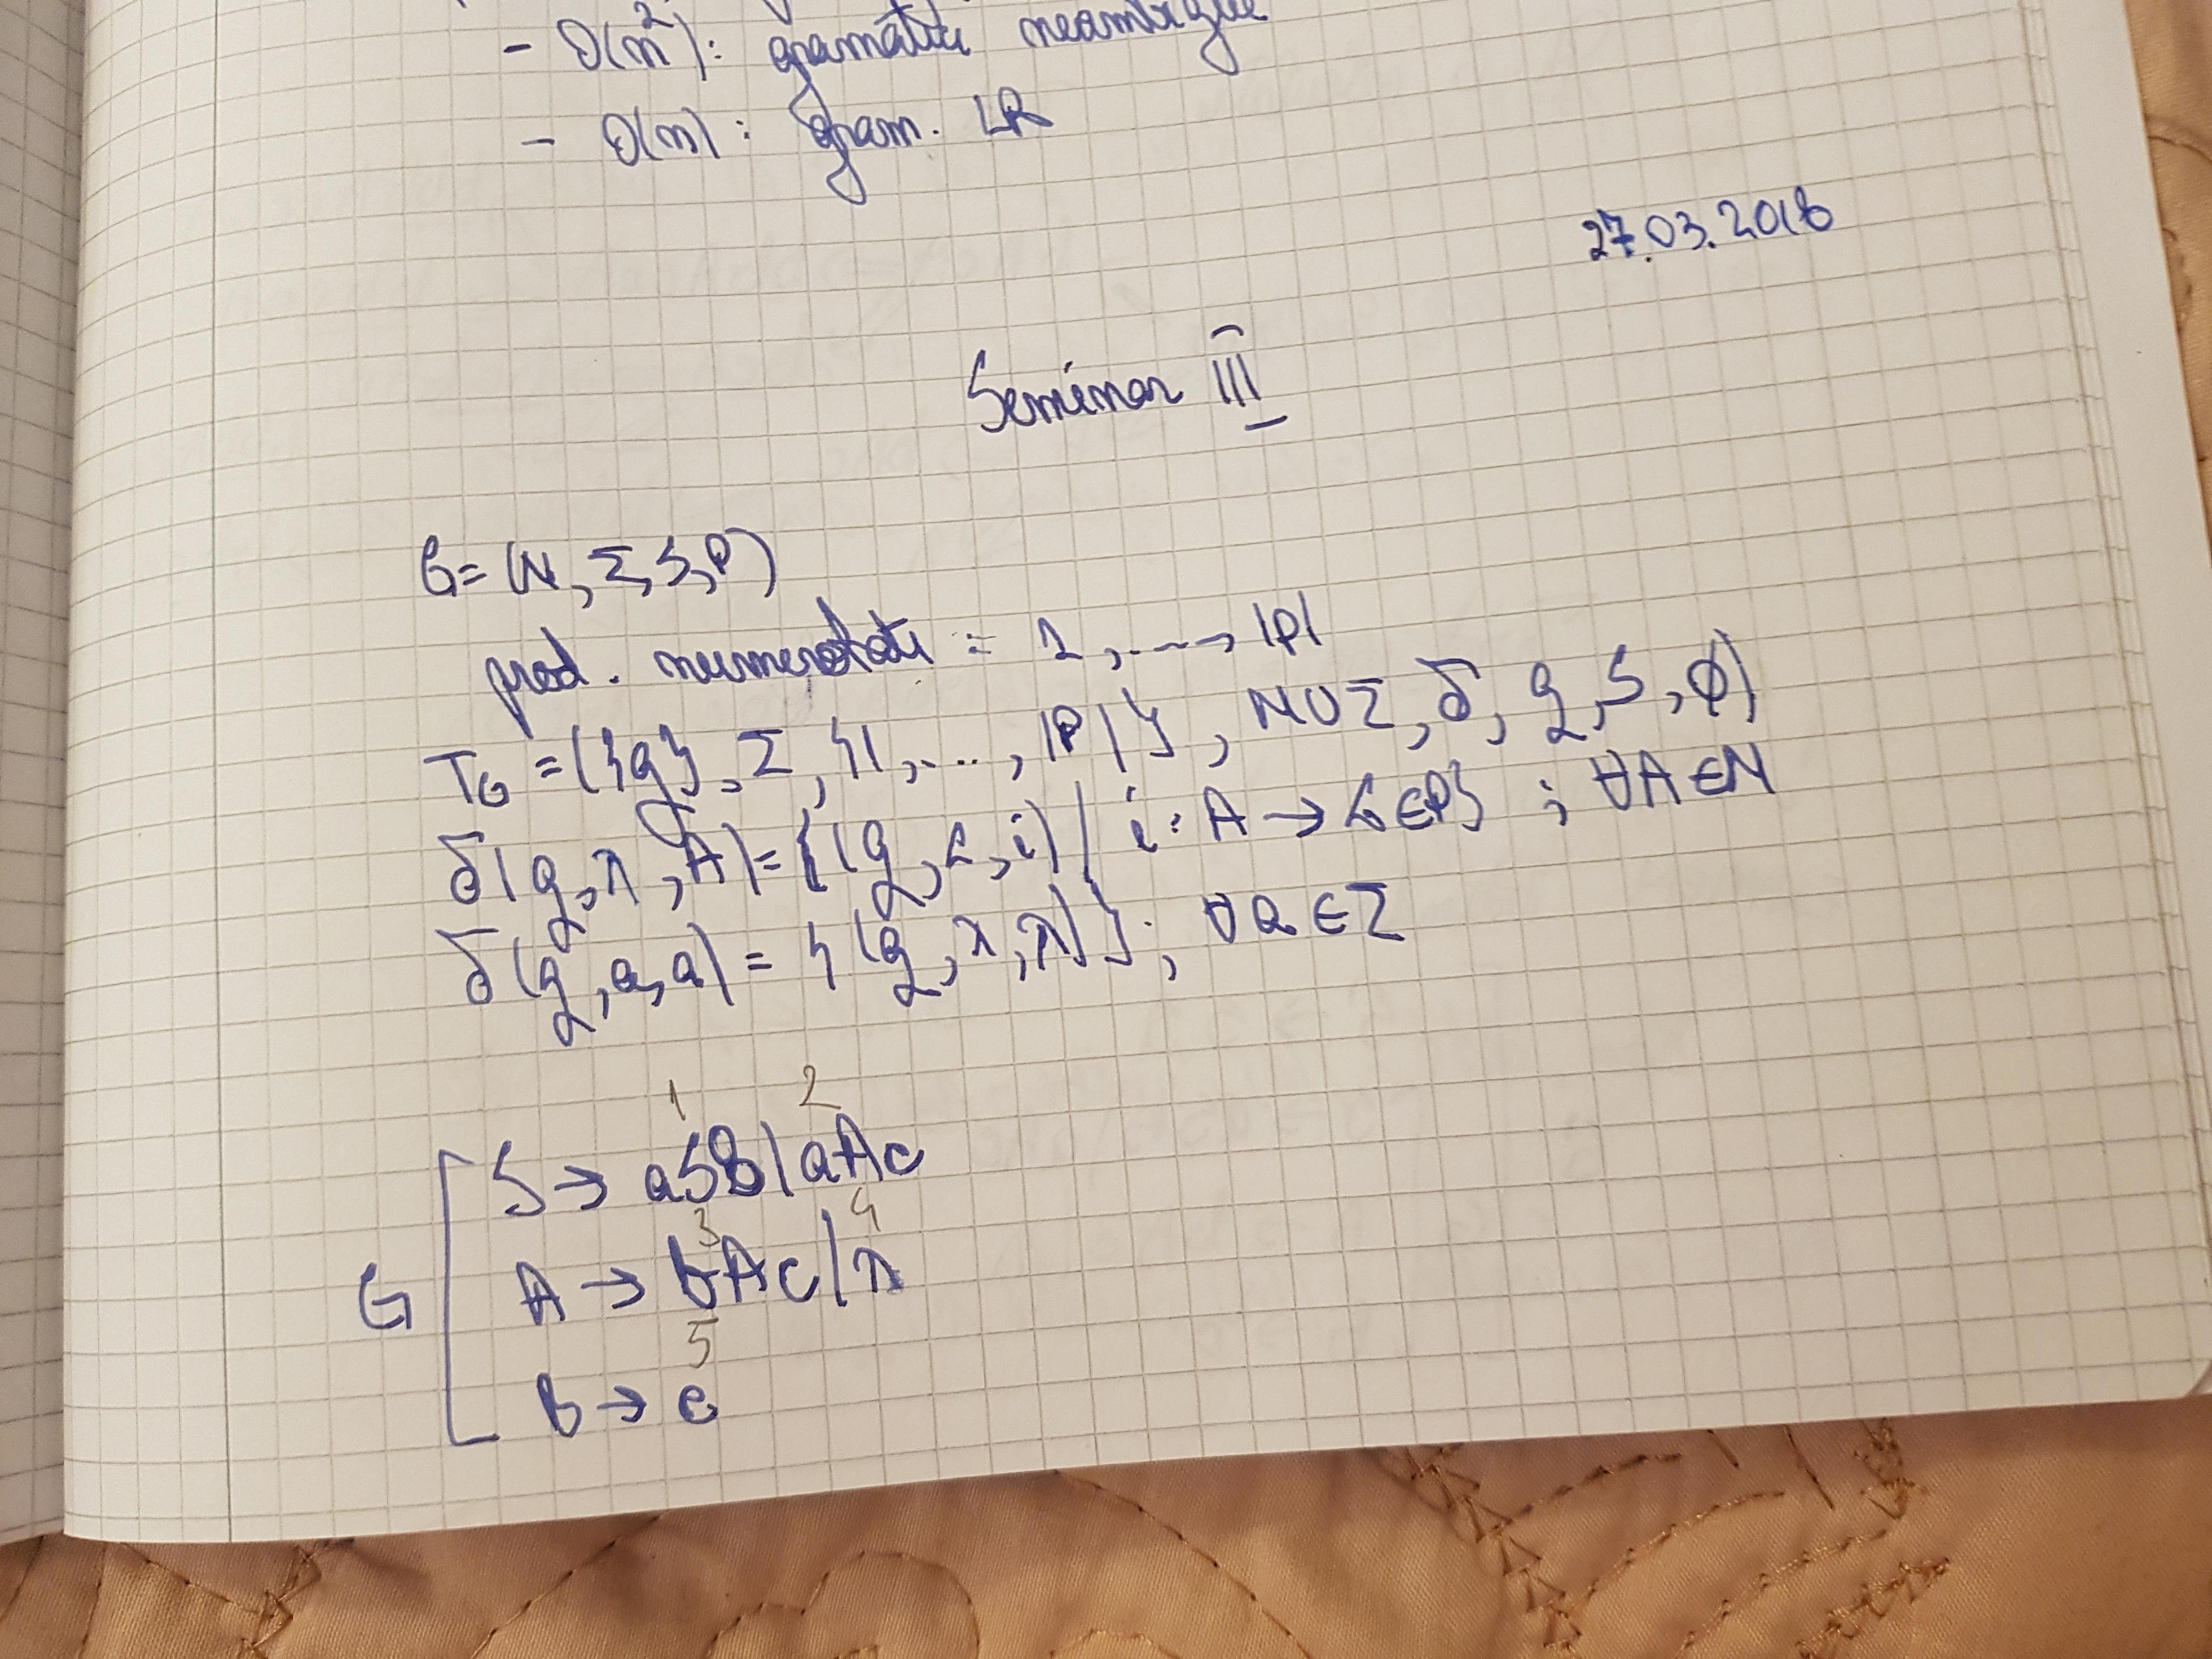 - O(n²): gramatici neambigue
- O(n): gram. LR
27.03.2018
Seminar III
G = (N, Σ, S, P)
prod. numerotate = 1, ..., |P|
T_G = ({q}, Σ, {1, ..., |P|}, N∪Σ, δ, q, S, ∅)
δ(q, λ, A) = {(q, α, i) | i: A → α ∈ P} ; ∀A ∈ N
δ(q, a, a) = {(q, λ, λ)} ; ∀a ∈ Σ
1 2
S → aSB | aAc
3 4
G A → bAc | λ
5
B → c